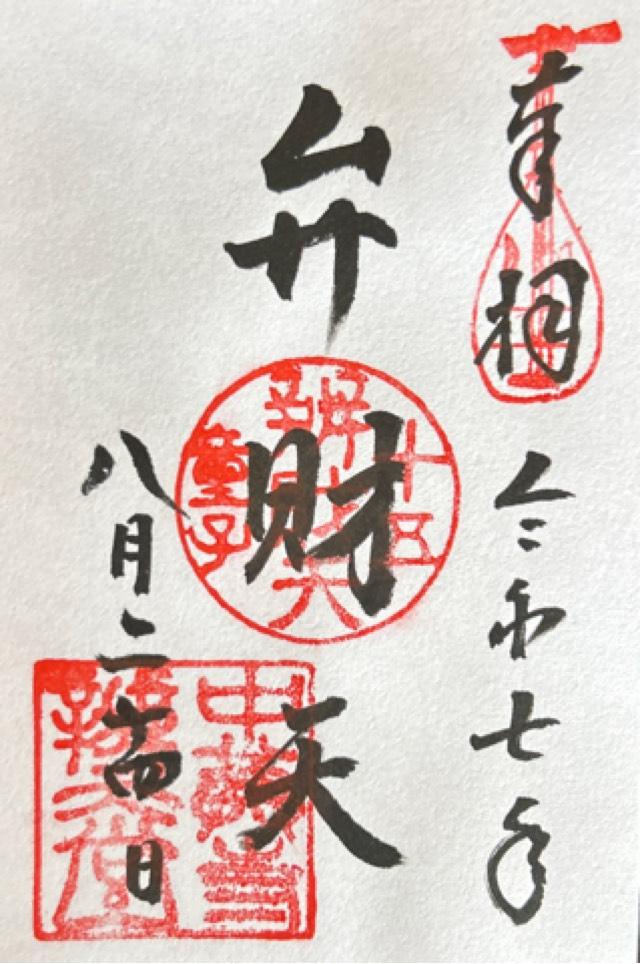 奉拝
令和七年
弁財天
十五
童子
八月二十四日
中尊寺
辨天堂